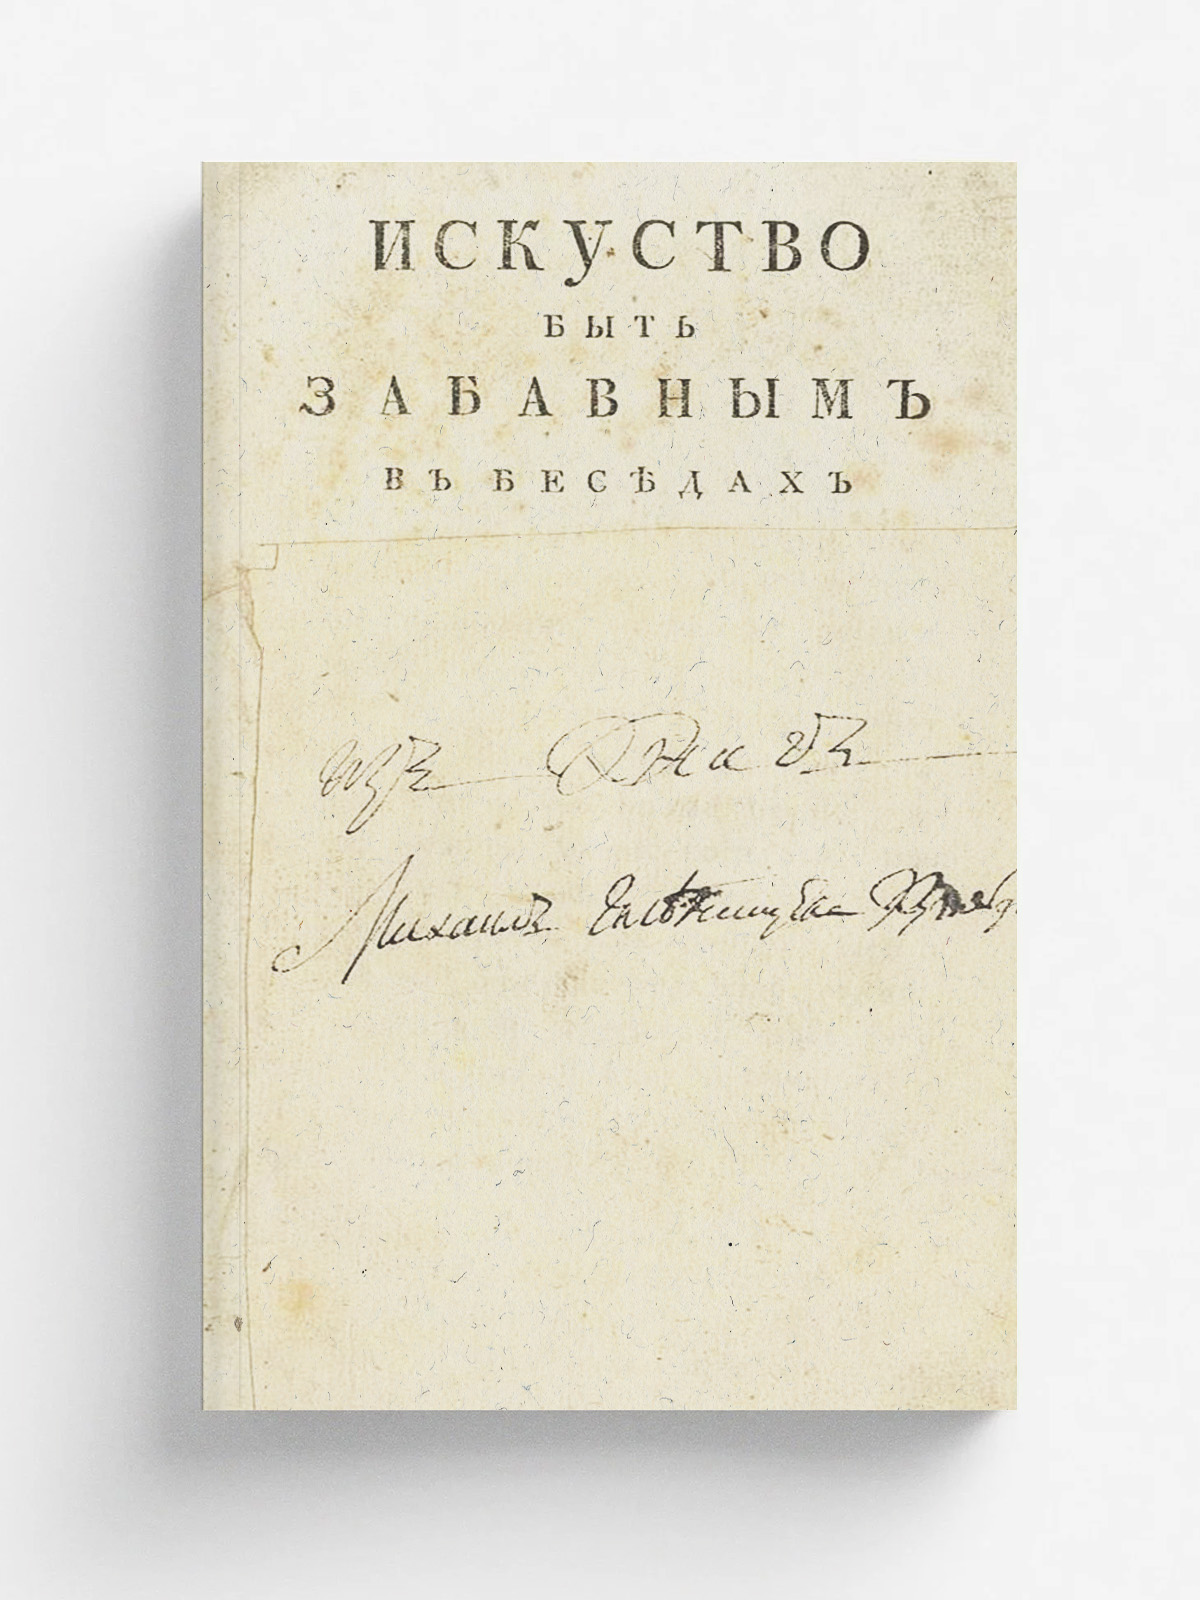 ИСКУСТВО
БЫТЬ
ЗАБАВНЫМЪ
ВЪ БЕСѢДАХЪ
изъ книгъ
Михаилъ